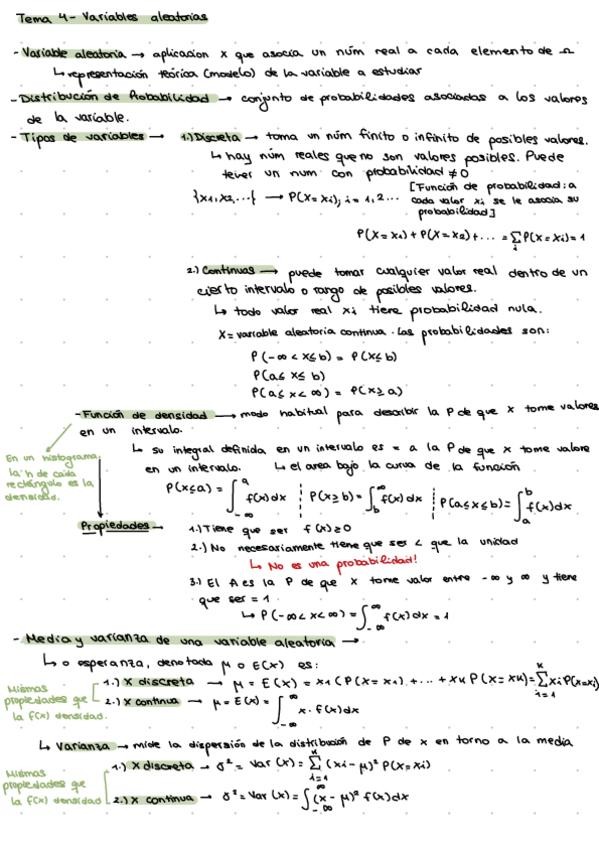 Tema 4 - Variables aleatorias
- Variable aleatoria → aplicacion X que asocia un núm real a cada elemento de Ω
↳ representación teórica (modelo) de la variable a estudiar
- Distribución de Probabilidad → conjunto de probabilidades asociadas a los valores
de la variable.
- Tipos de variables → 1.) Discreta → toma un núm finito o infinito de posibles valores.
↳ hay núm reales que no son valores posibles. Puede
tener un num con probabilidad ≠ 0
{x1, x2, ...} → P(X = xi); i = 1, 2... [Función de probabilidad: a
cada valor xi se le asocia su
probabilidad]
P(X = x1) + P(X = x2) + ... = Σi P(X = xi) = 1
2.) Continuas → puede tomar cualquier valor real dentro de un
cierto intervalo o rango de posibles valores.
↳ todo valor real xi tiene probabilidad nula.
X = variable aleatoria continua. Las probabilidades son:
P(-∞ < x ≤ b) = P(x ≤ b)
P(a ≤ x ≤ b)
P(a ≤ x < ∞) = P(x ≥ a)
- Función de densidad → modo habitual para describir la P de que X tome valores
en un intervalo.
↳ su integral definida en un intervalo es = a la P de que x tome valore
en un intervalo. ↳ el area bajo la curva de la función
En un histograma,
la h de cada
rectángulo es la
densidad.
P(x ≤ a) = ∫_{-∞}^{a} f(x)dx | P(x ≥ b) = ∫_{b}^{∞} f(x)dx | P(a ≤ x ≤ b) = ∫_{a}^{b} f(x)dx
Propiedades → 1.) Tiene que ser f(x) ≥ 0
2.) No necesariamente tiene que ser < que la unidad
↳ No es una probabilidad!
3.) El A es la P de que X tome valor entre -∞ y ∞ y tiene
que ser = 1
↳ P(-∞ < x < ∞) = ∫_{-∞}^{∞} f(x)dx = 1
- Media y varianza de una variable aleatoria →
↳ o esperanza, denotada μ o E(X) es:
1.) X discreta → μ = E(X) = x1 (P(X = x1) + ... + xk P(X = xk) = Σ_{i=1}^{k} xi P(X = xi)
2.) X continua → μ = E(X) = ∫_{-∞}^{∞} x · f(x)dx
Mismas
propiedades que
la f(x) densidad.
↳ Varianza → mide la dispersión de la distribución de P de x en torno a la media
1.) X discreta → σ² = Var(X) = Σ_{i=1}^{k} (xi - μ)² P(X = xi)
2.) X continua → σ² = Var(X) = ∫_{-∞}^{∞} (x - μ)² f(x)dx
Mismas
propiedades que
la f(x) densidad